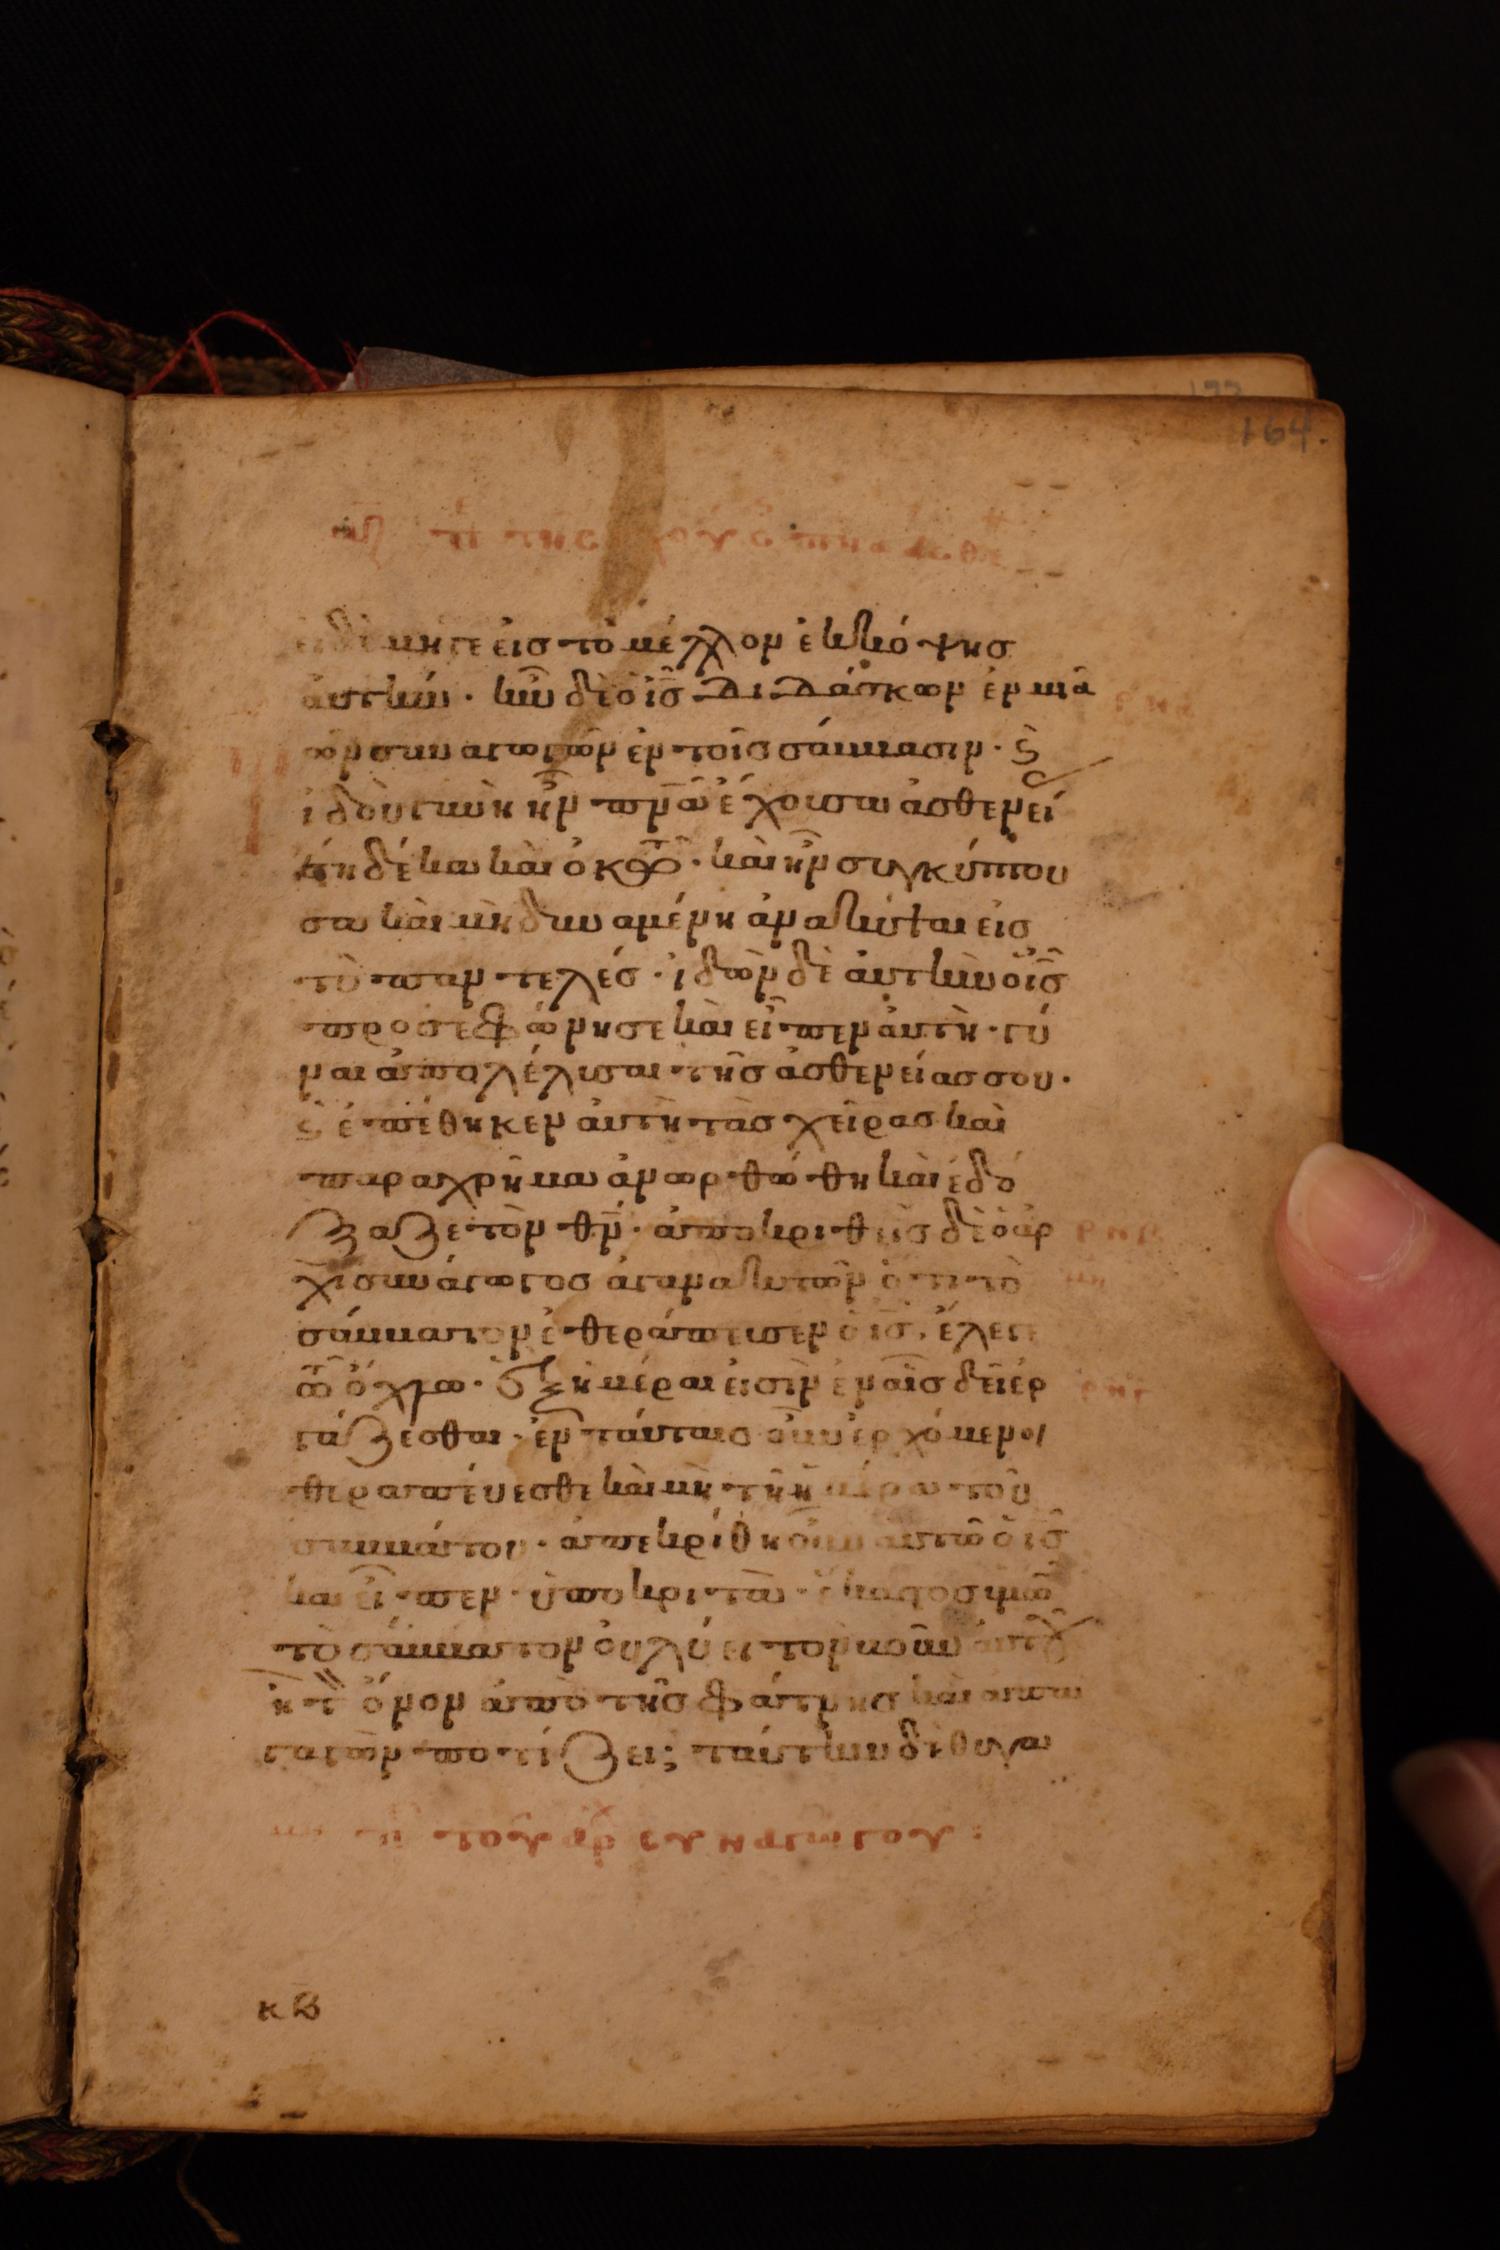 164.
εἰ δὲ μήγε εἰς τὸ μέλλον ἐκκόψης
ἀυτήν · ἦν δὲ ὁ ις διδάσκων ἐν μιᾶ
τῶν συναγωγῶν ἐν τοῖς σάββασιν · ϛ
ἰδοὺ γυνὴ ἦν πνα ἔχουσα ἀσθενεί
ἔτη δέκα καὶ ὀκτὼ · καὶ ἦν συγκύπτου
σα καὶ μὴ δυναμένη ἀνακύψαι εἰς
τὸ παντελές · ἰδὼν δὲ ἀυτὴν ὁ ις
προσεφώνησε καὶ εἶπεν ἀυτῆ · γύ
ναι ἀπολέλυσαι τῆς ἀσθενείας σου ·
ϛ ἐπέθηκεν ἀυτῆ τὰς χεῖρας καὶ
παραχρῆμα ἀνωρθώθη καὶ ἐδό
ξαζε τὸν θν · ἀποκριθεὶς δὲ ὁ ἀρ
χισυνάγωγος ἀγανακτῶν ὅτι τὸ
σάββατον ἐθεράπευσεν ὁ ις · ἔλεγε
τῶ ὄχλω · ἓξ ἡμέραι εἰσὶν ἐν αἷς δεῖ ἐρ
γάζεσθαι · ἐν ταύταις οὖν ἐρχόμενοι
θεραπεύεσθε καὶ μὴ τῆ ἡμέρα τοῦ
σαββάτου · ἀπεκρίθη οὖν ἀυτῶ ὁ ις
καὶ εἶπεν · ὑποκριτὰ · ἕκαστος ὑμῶν
τὸ σάββατον οὐ λύει τὸν βοῦν ἀυτοῦ
ἢ τ ὄνον ἀπὸ τῆς φάτνης καὶ ἀπα
γαγὼν ποτίζει; ταύτην δὲ θυγα
κβ